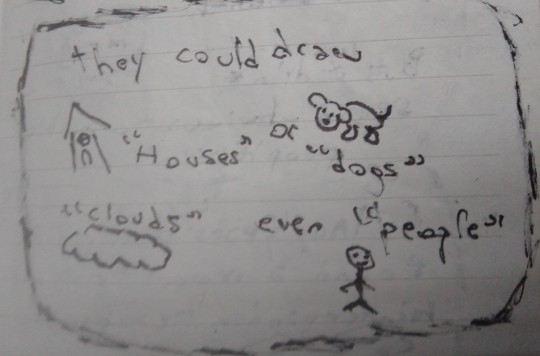 they could draw
"Houses" or "dogs"
"clouds" even "people"